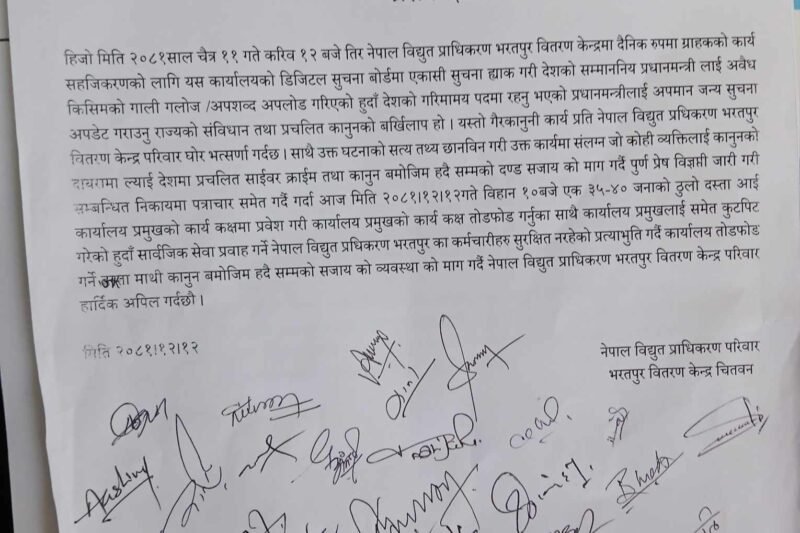 हिजो मिति २०८१साल चैत्र ११ गते करिव १२ बजे तिर नेपाल विद्युत प्राधिकरण भरतपुर वितरण केन्द्रमा दैनिक रुपमा ग्राहकको कार्य
सहजिकरणको लागि यस कार्यालयको डिजिटल सुचना बोर्डमा एकासी सुचना ह्याक गरी देशको सम्माननिय प्रधानमन्त्री लाई अवैध
किसिमको गाली गलोज /अपशव्द अपलोड गरिएको हुदाँ देशको गरिमामय पदमा रहनु भएको प्रधानमन्त्रीलाई अपमान जन्य सुचना
अपडेट गराउनु राज्यको संविधान तथा प्रचलित कानुनको बर्खिलाप हो । यस्तो गैरकानुनी कार्य प्रति नेपाल विद्युत प्रधिकरण भरतपुर
वितरण केन्द्र परिवार घोर भत्सर्णा गर्दछ । साथै उक्त घटनाको सत्य तथ्य छानविन गरी उक्त कार्यमा संलग्न जो कोही व्यक्तिलाई कानुनको
दायरामा ल्याई देशमा प्रचलित साईवर क्राईम तथा कानुन बमोजिम हदै सम्मको दण्ड सजाय को माग गर्दै पुर्ण प्रेष विज्ञप्ती जारी गरी
सम्बन्धित निकायमा पत्राचार समेत गर्दै गर्दा आज मिति २०८१।१२।१२गते विहान १०बजे एक ३५-४० जनाको ठुलो दस्ता आई
कार्यालय प्रमुखको कार्य कक्षमा प्रवेश गरी कार्यालय प्रमुखको कार्य कक्ष तोडफोड गर्नुका साथै कार्यालय प्रमुखलाई समेत कुटपिट
गरेको हुदाँ सार्वजिक सेवा प्रवाह गर्ने नेपाल विद्युत प्रधिकरण भरतपुर का कर्मचारीहरु सुरक्षित नरहेको प्रत्याभुति गर्दै कार्यालय तोडफोड
गर्ने माथी कानुन बमोजिम हदै सम्मको सजाय को व्यवस्था को माग गर्दै नेपाल विद्युत प्राधिकरण भरतपुर वितरण केन्द्र परिवार
हार्दिक अपिल गर्दछौ ।
मिति २०८१।१२।१२
नेपाल विद्युत प्राधिकरण परिवार
भरतपुर वितरण केन्द्र चितवन